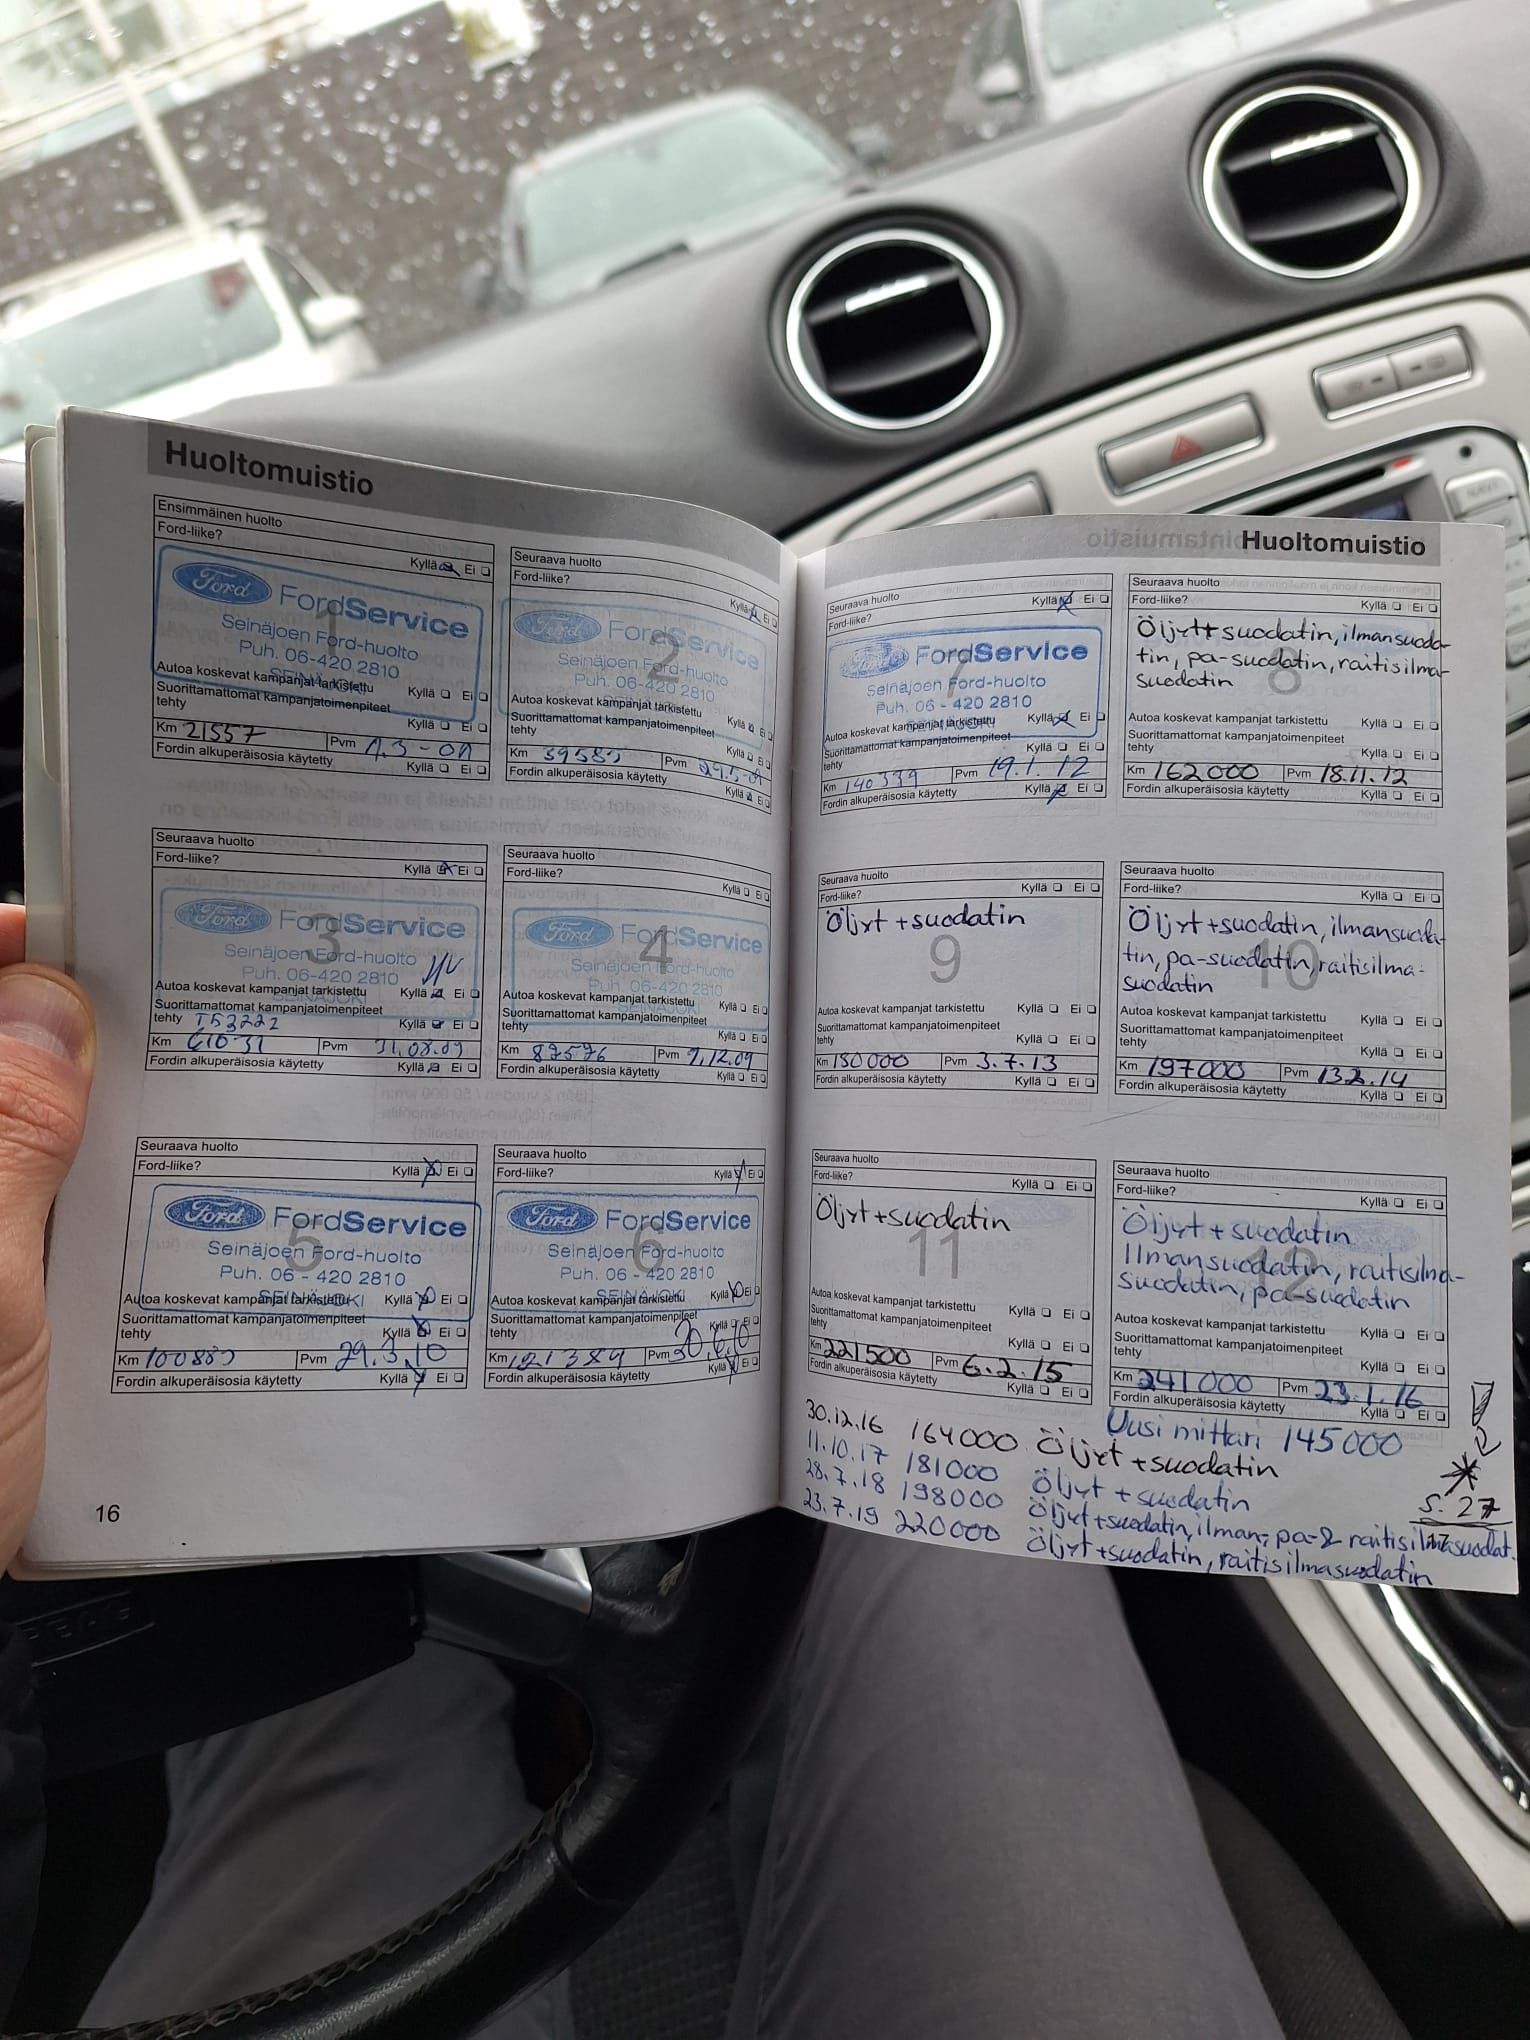 Huoltomuistio
Ensimmäinen huolto
Ford-liike?
Kyllä Ei
Ford
FordService
1
Seinäjoen Ford-huolto
Puh. 06-420 2810
SEINÄJOKI
Autoa koskevat kampanjat tarkistettu
Kyllä Ei
Suorittamattomat kampanjatoimenpiteet
tehty
Kyllä Ei
Km 21557
Pvm
Fordin alkuperäisosia käytetty
Kyllä Ei
Seuraava huolto
Ford-liike?
Kyllä Ei
Ford
FordService
2
Seinäjoen Ford-huolto
Puh. 06-420 2810
Autoa koskevat kampanjat tarkistettu
Kyllä Ei
Suorittamattomat kampanjatoimenpiteet
tehty
Kyllä Ei
Km
Pvm 29.5-09
Fordin alkuperäisosia käytetty
Kyllä Ei
Seuraava huolto
Ford-liike?
Kyllä Ei
Ford
FordService
3
Seinäjoen Ford-huolto
Puh. 06-420 2810
SEINÄJOKI
Autoa koskevat kampanjat tarkistettu
Kyllä Ei
Suorittamattomat kampanjatoimenpiteet
tehty
Kyllä Ei
Km 61031
Pvm 31.08.09
Fordin alkuperäisosia käytetty
Kyllä Ei
Seuraava huolto
Ford-liike?
Kyllä Ei
Ford
FordService
4
Seinäjoen Ford-huolto
Puh. 06-420 2810
SEINÄJOKI
Autoa koskevat kampanjat tarkistettu
Kyllä Ei
Suorittamattomat kampanjatoimenpiteet
tehty
Kyllä Ei
Km 82576
Pvm 9.12.09
Fordin alkuperäisosia käytetty
Kyllä Ei
Seuraava huolto
Ford-liike?
Kyllä Ei
Ford
FordService
5
Seinäjoen Ford-huolto
Puh. 06 - 420 2810
SEINÄJOKI
Autoa koskevat kampanjat tarkistettu
Kyllä Ei
Suorittamattomat kampanjatoimenpiteet
tehty
Kyllä Ei
Km
Pvm 29.3.10
Fordin alkuperäisosia käytetty
Kyllä Ei
Seuraava huolto
Ford-liike?
Kyllä Ei
Ford
FordService
6
Seinäjoen Ford-huolto
Puh. 06 - 420 2810
SEINÄJOKI
Autoa koskevat kampanjat tarkistettu
Kyllä Ei
Suorittamattomat kampanjatoimenpiteet
tehty
Kyllä Ei
Km 121389
Pvm 30.6.10
Fordin alkuperäisosia käytetty
Kyllä Ei
16
Huoltomuistio
Seuraava huolto
Ford-liike?
Kyllä Ei
FordService
7
Seinäjoen Ford-huolto
Puh. 06 - 420 2810
SEINÄJOKI
Autoa koskevat kampanjat tarkistettu
Kyllä Ei
Suorittamattomat kampanjatoimenpiteet
tehty
Kyllä Ei
Km 140339
Pvm 19.1.12
Fordin alkuperäisosia käytetty
Kyllä Ei
Seuraava huolto
Ford-liike?
Kyllä Ei
8
Öljyt+suodatin, ilmansuoda-
tin, pa-suodatin, raitisilma-
suodatin
Autoa koskevat kampanjat tarkistettu
Kyllä Ei
Suorittamattomat kampanjatoimenpiteet
tehty
Kyllä Ei
Km 162000
Pvm 18.11.12
Fordin alkuperäisosia käytetty
Kyllä Ei
Seuraava huolto
Ford-liike?
Kyllä Ei
Öljyt +suodatin
9
Autoa koskevat kampanjat tarkistettu
Kyllä Ei
Suorittamattomat kampanjatoimenpiteet
tehty
Kyllä Ei
Km 180000
Pvm 3.7.13
Fordin alkuperäisosia käytetty
Kyllä Ei
Seuraava huolto
Ford-liike?
Kyllä Ei
10
Öljyt +suodatin, ilmansuoda-
tin, pa-suodatin, raitisilma-
suodatin
Autoa koskevat kampanjat tarkistettu
Kyllä Ei
Suorittamattomat kampanjatoimenpiteet
tehty
Kyllä Ei
Km 197000
Pvm 13.2.14
Fordin alkuperäisosia käytetty
Kyllä Ei
Seuraava huolto
Ford-liike?
Kyllä Ei
Öljyt +suodatin
11
Autoa koskevat kampanjat tarkistettu
Kyllä Ei
Suorittamattomat kampanjatoimenpiteet
tehty
Kyllä Ei
Km 221500
Pvm 6.2.15
Fordin alkuperäisosia käytetty
Kyllä Ei
Seuraava huolto
Ford-liike?
Kyllä Ei
12
Öljyt + suodatin
Ilmansuodatin, raitisilma-
suodatin, pa-suodatin
Autoa koskevat kampanjat tarkistettu
Kyllä Ei
Suorittamattomat kampanjatoimenpiteet
tehty
Kyllä Ei
Km 241000
Pvm 23.1.16
Fordin alkuperäisosia käytetty
Kyllä Ei
Uusi mittari 145000
30.12.16 164000 Öljyt +suodatin
11.10.17 181000 Öljyt + suodatin
28.7.18 198000 Öljyt+suodatin, ilman-, pa- & raitisilmasuodat.
23.7.19 220000 Öljyt+suodatin, raitisilmasuodatin
S. 27